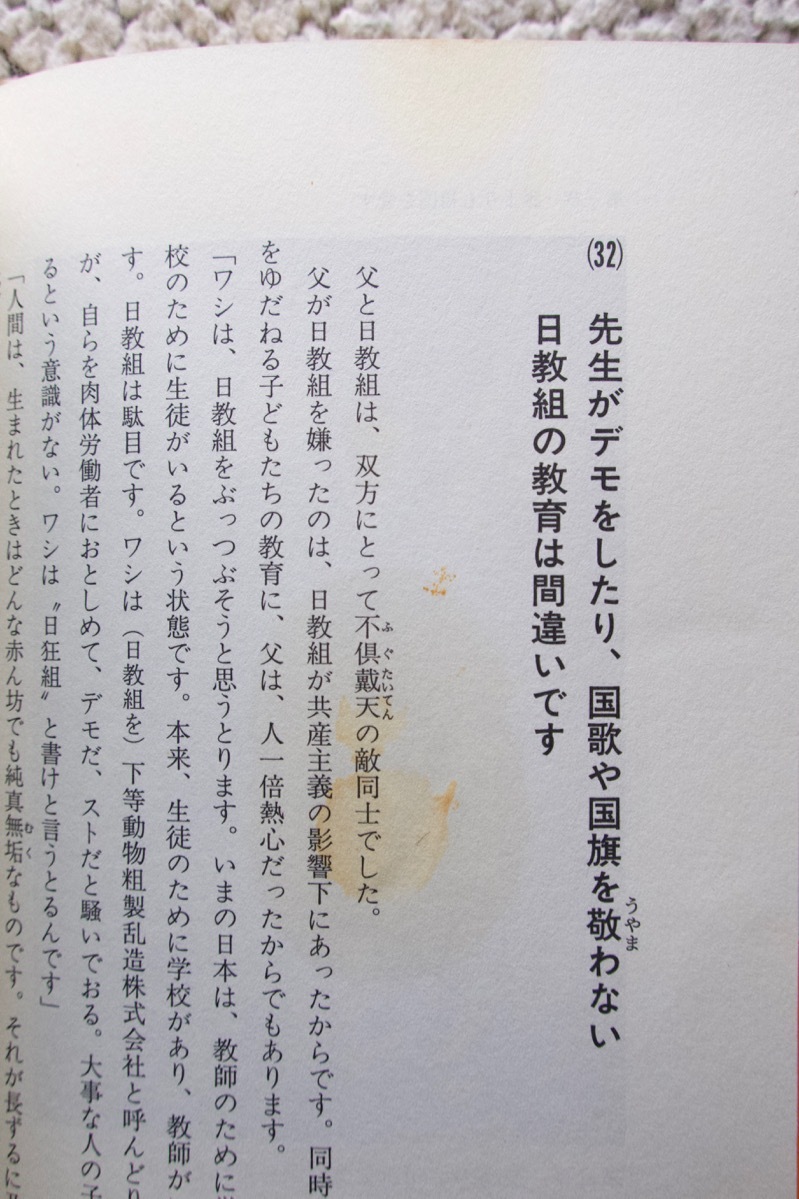 (32) 先生がデモをしたり、国歌や国旗を敬わない
日教組の教育は間違いです
父と日教組は、双方にとって不倶戴天の敵同士でした。
父が日教組を嫌ったのは、日教組が共産主義の影響下にあったからです。同時
をゆだねる子どもたちの教育に、父は、人一倍熱心だったからでもあります。
「ワシは、日教組をぶっつぶそうと思うとります。いまの日本は、教師のために
校のために生徒がいるという状態です。本来、生徒のために学校があり、教師が
す。日教組は駄目です。ワシは（日教組を）下等動物粗製乱造株式会社と呼んど
が、自らを肉体労働者におとしめて、デモだ、ストだと騒いでおる。大事な人の子
るという意識がない。ワシは〝日狂組〟と書けと言うとるんです」
「人間は、生まれたときはどんな赤ん坊でも純真無垢なものです。それが長ずるに